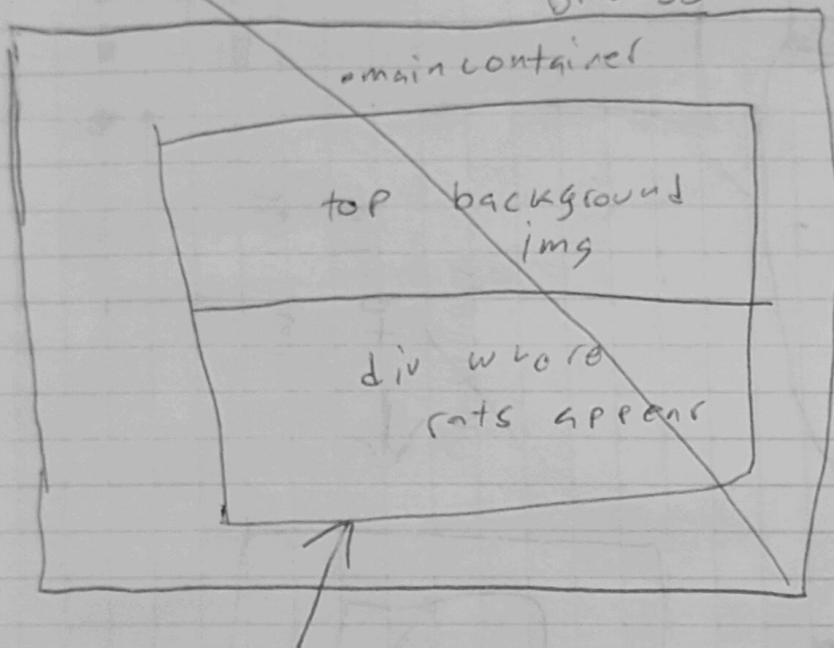 .maincontainer
top background
img
div where
rats appear